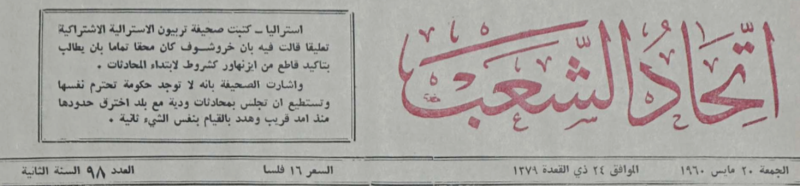 اتحاد الشعب
استراليا ـ كتبت صحيفة تربيون الاسترالية الاشتراكية
تعليقا قالت فيه بان خروشوف كان محقا تماما بان يطالب
بتاكيد قاطع من ايزنهاور كشروط لابتداء المحادثات .
واشارت الصحيفة بانه لا توجد حكومة تحترم نفسها
وتستطيع ان تجلس بمحادثات ودية مع بلد اخترق حدودها
منذ امد قريب وهدد بالقيام بنفس الشيء ثانية .
الجمعة ٢٠ مايس ١٩٦٠ الموافق ٢٤ ذي القعدة ١٣٧٩ السعر ١٦ فلسا العدد ٩٨ السنة الثانية